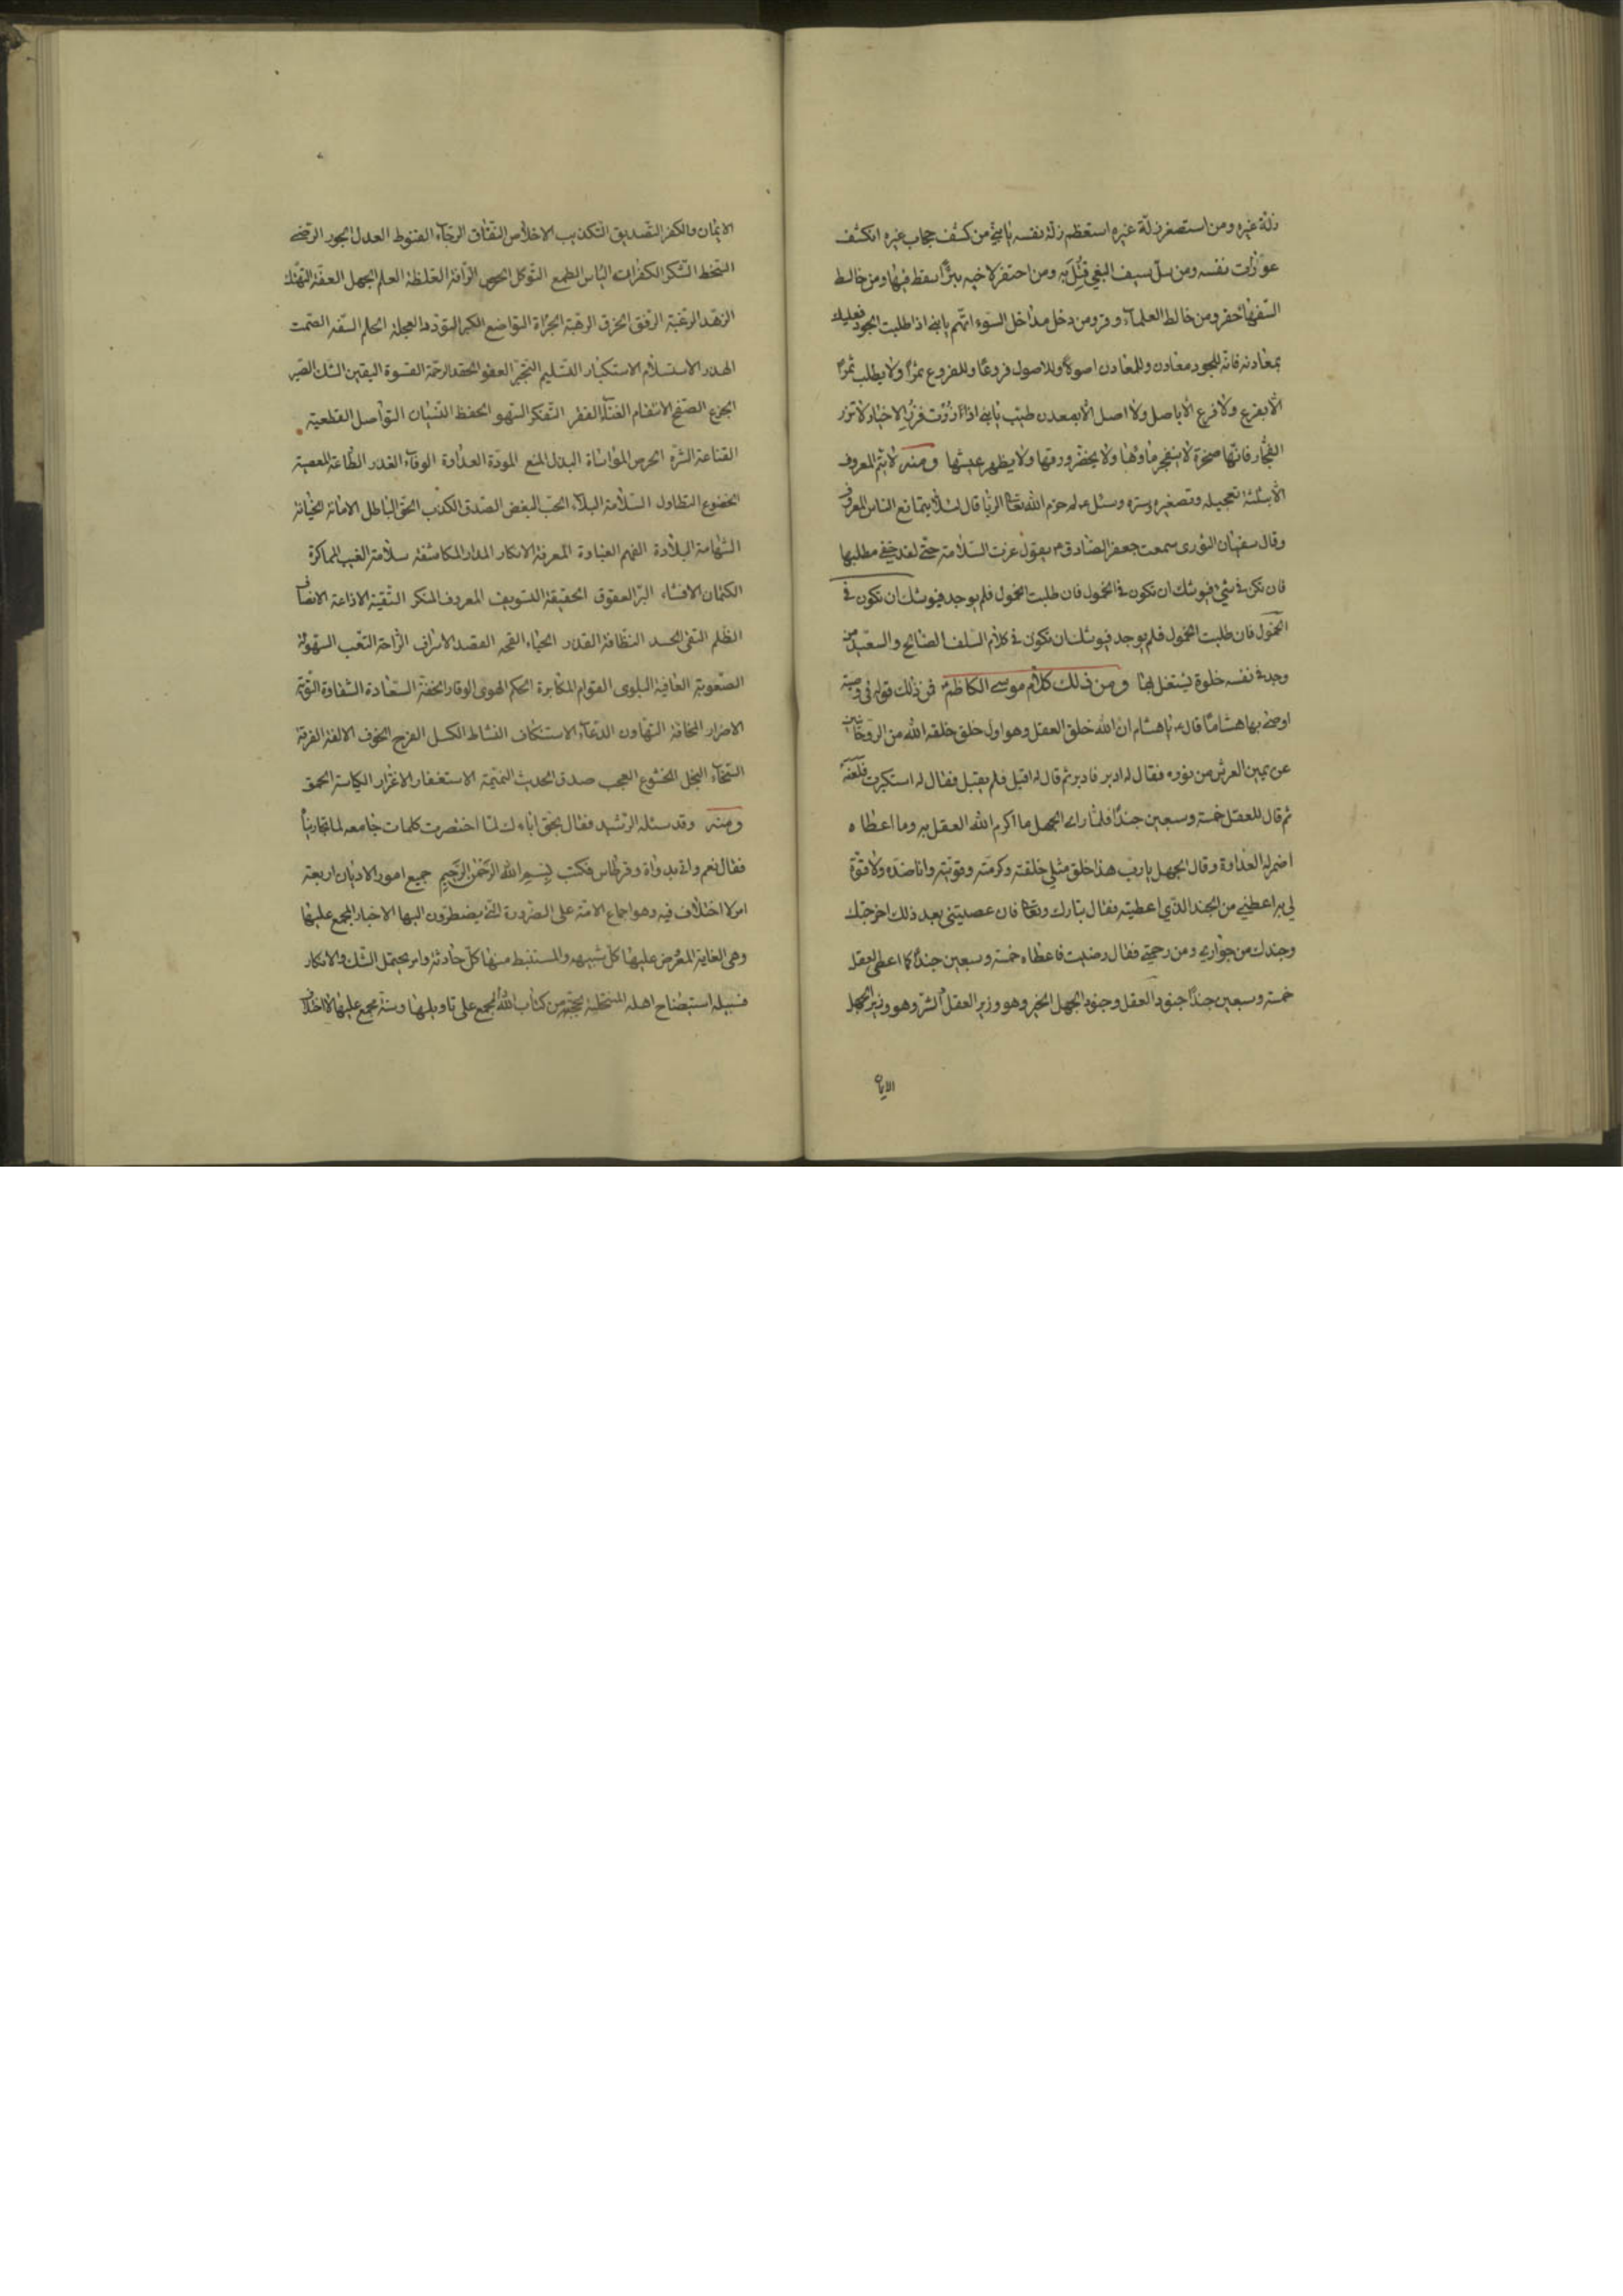 زلة غيره ومن استصغر زلة غيره استعظم زلة نفسه يا بني من كشف حجاب غيره انكشف
عورات نفسه ومن سلّ سيف البغي قُتِلَ به ومن احتفر لاخيه بئرًا سقط فيها ومن خالط
السفهاء حقر ومن خالط العلماء وقر ومن دخل مداخل السّوء اتّهم يا بني اذا طلبت الجود فعليك
بمعادنه فانّه للجود معادن وللمعادن اصولا وللاصول فروعًا وللفروع ثمرًا ولا يطلب ثمرًا
الّا بفرع ولا فرع الّا باصل ولا اصل الّا بمعدن طيّب يا بني اذا زرت فزر الاخيار ولا تزر
الفجّار فانّها صخرة لا ينفجر ماؤها ولا يخضر ورقها ولا يظهر عشبها ومنه لا يتم المعروف
الّا بثلثة تعجيله وتصغيره وستره وسئل لم حرم الله تعا الربا قال لئلّا يتمانع الناس المعروف
وقال سفيان الثوری سمعت جعفر الصادق ع يقول عزت السّلامة حتّى لقد خفي مطلبها
فان تكن في شئ فيوشك ان تكون في الخمول فان طلبت الخمول فلم يوجد فيوشك ان تكون في
الخمول فان طلبت الخمول فلم يوجد فيوشك ان تكون في كلام السّلف الصالح والسّعيد من
وجد في نفسه خلوة يشتغل بها ومن ذلك كلام موسى الكاظم فمن ذلك قوله في وصيّة
اوصى بها هشامًا قال يا هشام انّ الله خلق العقل وهو اول خلق خلقه الله من الروحانيين
عن يمين العرش من نوره فقال له ادبر فادبر ثم قال له اقبل فلم يقبل فقال له استكبرت فلعنه
ثم قال للعقل خمسة وسبعين جندًا فلمّا رای الجهل ما اكرم الله العقل به وما اعطاه
اضمر له العداوة وقال الجهل يا رب هذا خلق مثلي خلقته وكرمته وقويته وانا ضدّه ولا قوّة
لي به اعطني من الجند الذي اعطيته فقال تبارك وتعا فان عصيتني بعد ذلك اخرجتك
وجندك من جواري ومن رحمتي فقال رضيت فاعطاه خمسة وسبعين جندًا كما اعطى العقل
خمسة وسبعين جندًا جنود العقل وجنود الجهل الخير وهو وزير العقل الشر وهو وزير الجهل
الايمان
الايمان والكفر التصديق التكذيب الاخلاص النفاق الرجاء القنوط العدل الجور الرضى
السّخط الشكر الكفران الياس الطمع التوكل الحرص الرّافة الغلظة العلم الجهل العفة التهتّك
الزهد الرغبة الرفق الخرق الرهبة الجرأة التواضع الكبر التؤدة العجلة الحلم السّفه الصّمت
الهدر الاستسلام الاستكبار التّسليم التّجبّر العفو الحقد الرحمة القسوة اليقين الشّك الصّبر
الجزع الصّفح الانتقام الغنى الفقر التّفكر السّهو الحفظ النّسيان التّواصل القطيعة
القناعة الشّره الحرص المواساة البذل المنع المودّة العداوة الوفاء الغدر الطّاعة المعصية
الخضوع التطاول السّلامة البلاء الحبّ البغض الصّدق الكذب الحق الباطل الامانة الخيانة
الشهامة البلادة الفهم الغباوة المعرفة الانكار المدار المكاشفة سلامة الغيب المماكرة
الكتمان الافشاء البرّ العقوق الحقيقة التسويف المعروف المنكر التّقية الاذاعة الانصاف
الظّلم النفى الحسد النّظافة القذر الحياء القحه القصد الاسراف الرّاحة التّعب السّهولة
الصّعوبة العافية البلوى القوام المكاثرة الحكم الهوى الوقار الخفّة السّعادة الشقاوة التّوبة
الاصرار المخافة التّهاون الدّعاء الاستنكاف النشاط الكسل الفرح الحزن الالفة الفرقة
السّخاء البخل الخشوع العجب صدق الحديث النميمة الاستغفار الاغترار الكياسة الحمق
ومنه وقد سئله الرّشيد فقال بحق اباءك لمّا اختصرت كلمات جامعه لما تجاريناه
فقال نعم واتى بدواة وقرطاس فكتب بسم الله الرّحمٰن الرّحيم جميع امور الاديان اربعة
امر لا اختلاف فيه وهو اجماع الامّة على الضرورة التى يضطرّون اليها الاخبار المجمع عليها
وهى الغاية المعروض عليها كلّ شبهه والمستنبط منها كلّ حادثة وامر يحتمل الشّك والانكار
فسبيله استيضاح اهله لمنتحليه بحجّة من كتاب الله المجمع على تاويلها وسنّة مجمع عليها لا اختلاف